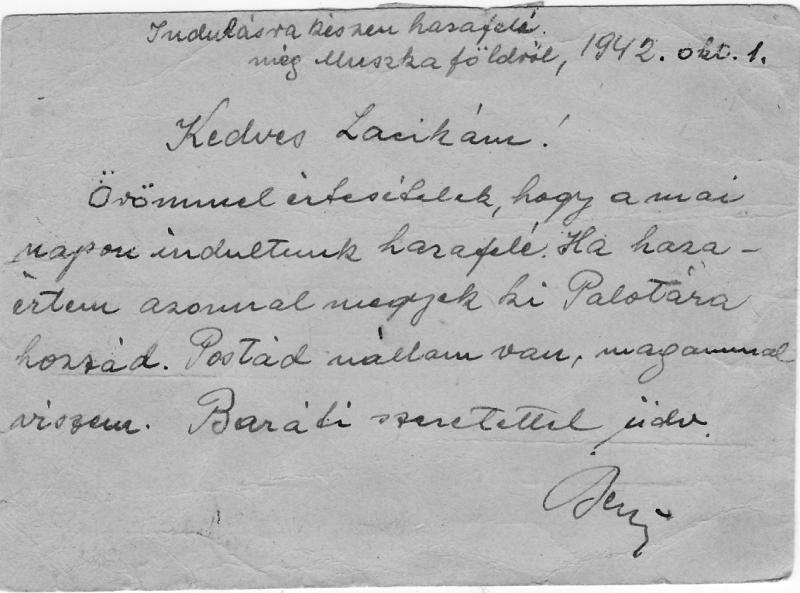 Indulásra készen hazafelé.
még Muszka földről, 1942. okt. 1.
Kedves Lacikám!
Örömmel értesítelek, hogy a mai
napon indultunk hazafelé. Ha haza-
értem azonnal megyek ki Palotára
hozzád. Postád nállam van, magammal
viszem. Baráti szeretettel üdv.